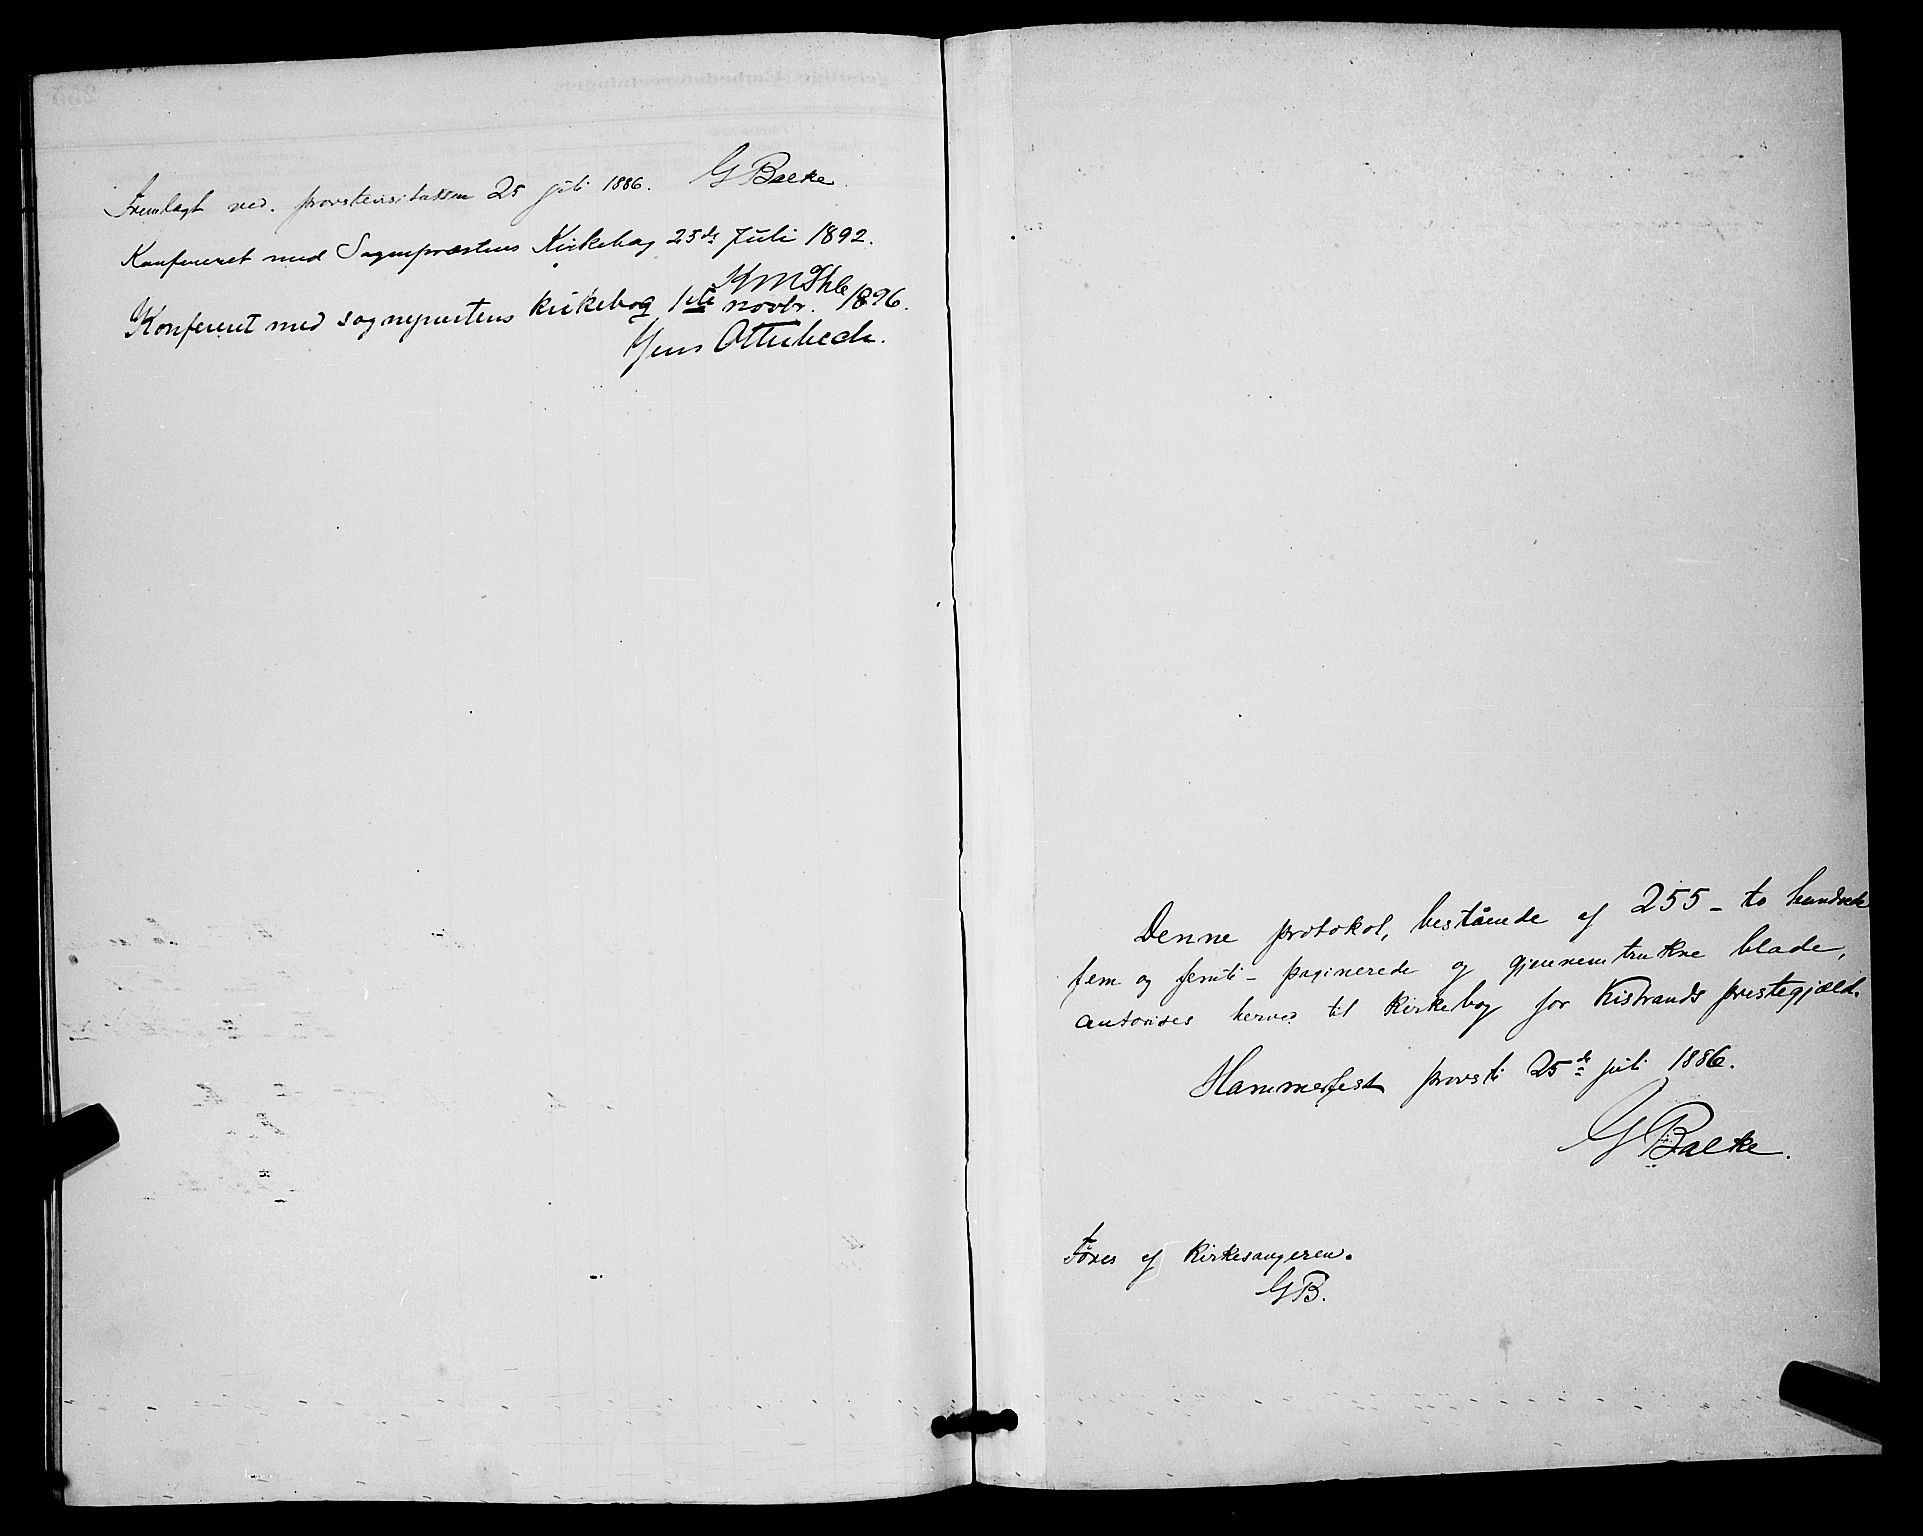 Fremlagt ved. provstevisitatsen 25 juli 1886. G Balke.
Konfereret med Sognepræstens Kirkebog 25de Juli 1892.
Konfereret med sogneprestens kirkebog 1ste novbr. 1896.
Jens Otterbech.
Denne protokol, bestående af 255 – to hundrede
fem og femti – paginerede og gjennemtrukne blade,
autorises herved til kirkebog for Kistrands prestegjæld.
Hammerfest provsti 25de juli 1886.
G Balke.
Føres af kirkesangeren.
GB.